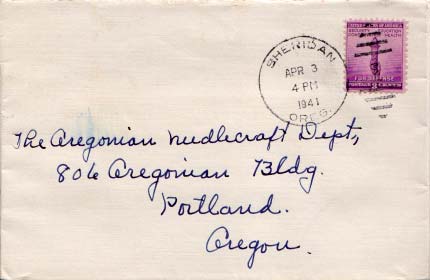 SHERIDAN
APR 3
4 PM
1941
OREG.
UNITED STATES OF AMERICA
SECURITY EDUCATION
CONSERVATION HEALTH
FOR DEFENSE
POSTAGE 3 CENTS
The Oregonian Needlecraft Dept,
806 Oregonian Bldg.
Portland.
Oregon.